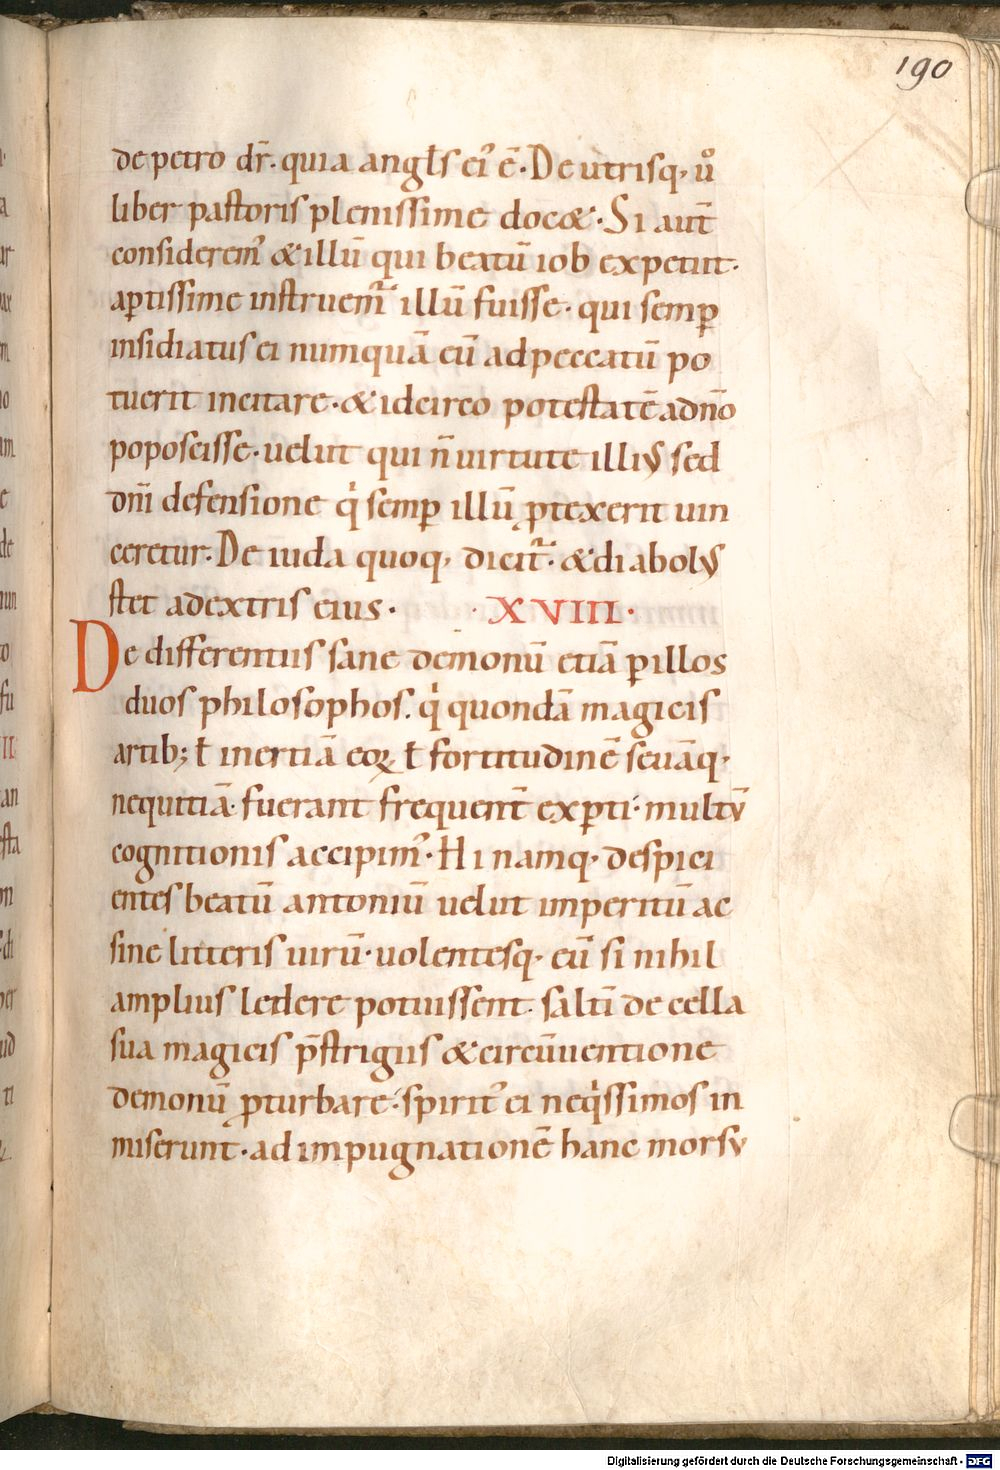 190
de petro dr̄. quia angl̄s ei᾽ ē. De utrisq, uͦ
liber pastoris plenissime docet. Si aut̄
considerem᾽ & illū qui beatū iob expetiit.
aptissime instruem᾽ illū fuisse. qui semꝑ
insidiatus ei numquā eū ad peccatū po
tuerit incitare. & idcirco potestatē adnōo
poposcisse. uelut qui n̄ uirtute illiꝰ sed
dn̄i defensione qͥ semꝑ illū ꝓtexerit uin
ceretur. De iuda quoq, dicit᾽. & diabolꝰ
stet adextris eius. XVIII.
De differentiis sane demonū etiā ꝑ illos
duos philosophos. qͥ quondā magicis
artib; ƚ inertiā eoꝝ ƚ fortitudinē seuāq,
nequitiā. fuerant frequent̄ exꝑti. multū
cognitionis accipim᾽. Hi namq, despici
entes beatū antoniū uelut imperitū ac
sine litteris uirū. uolentesq, eū si nihil
amplius ledere potuissent. saltī de cella
sua magicis p̄strigiis & circūuentione
demonū ꝓturbare. spirit᾽ ei neqͥssimos in
miserunt. ad impugnationē hanc morsu
Digitalisierung gefördert durch die Deutsche Forschungsgemeinschaft - DFG